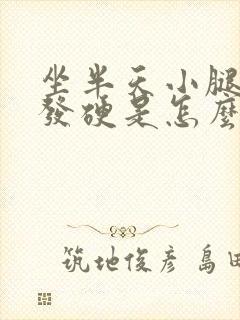 坐半天小腿
發硬是怎麼
筑地俊彥 島田